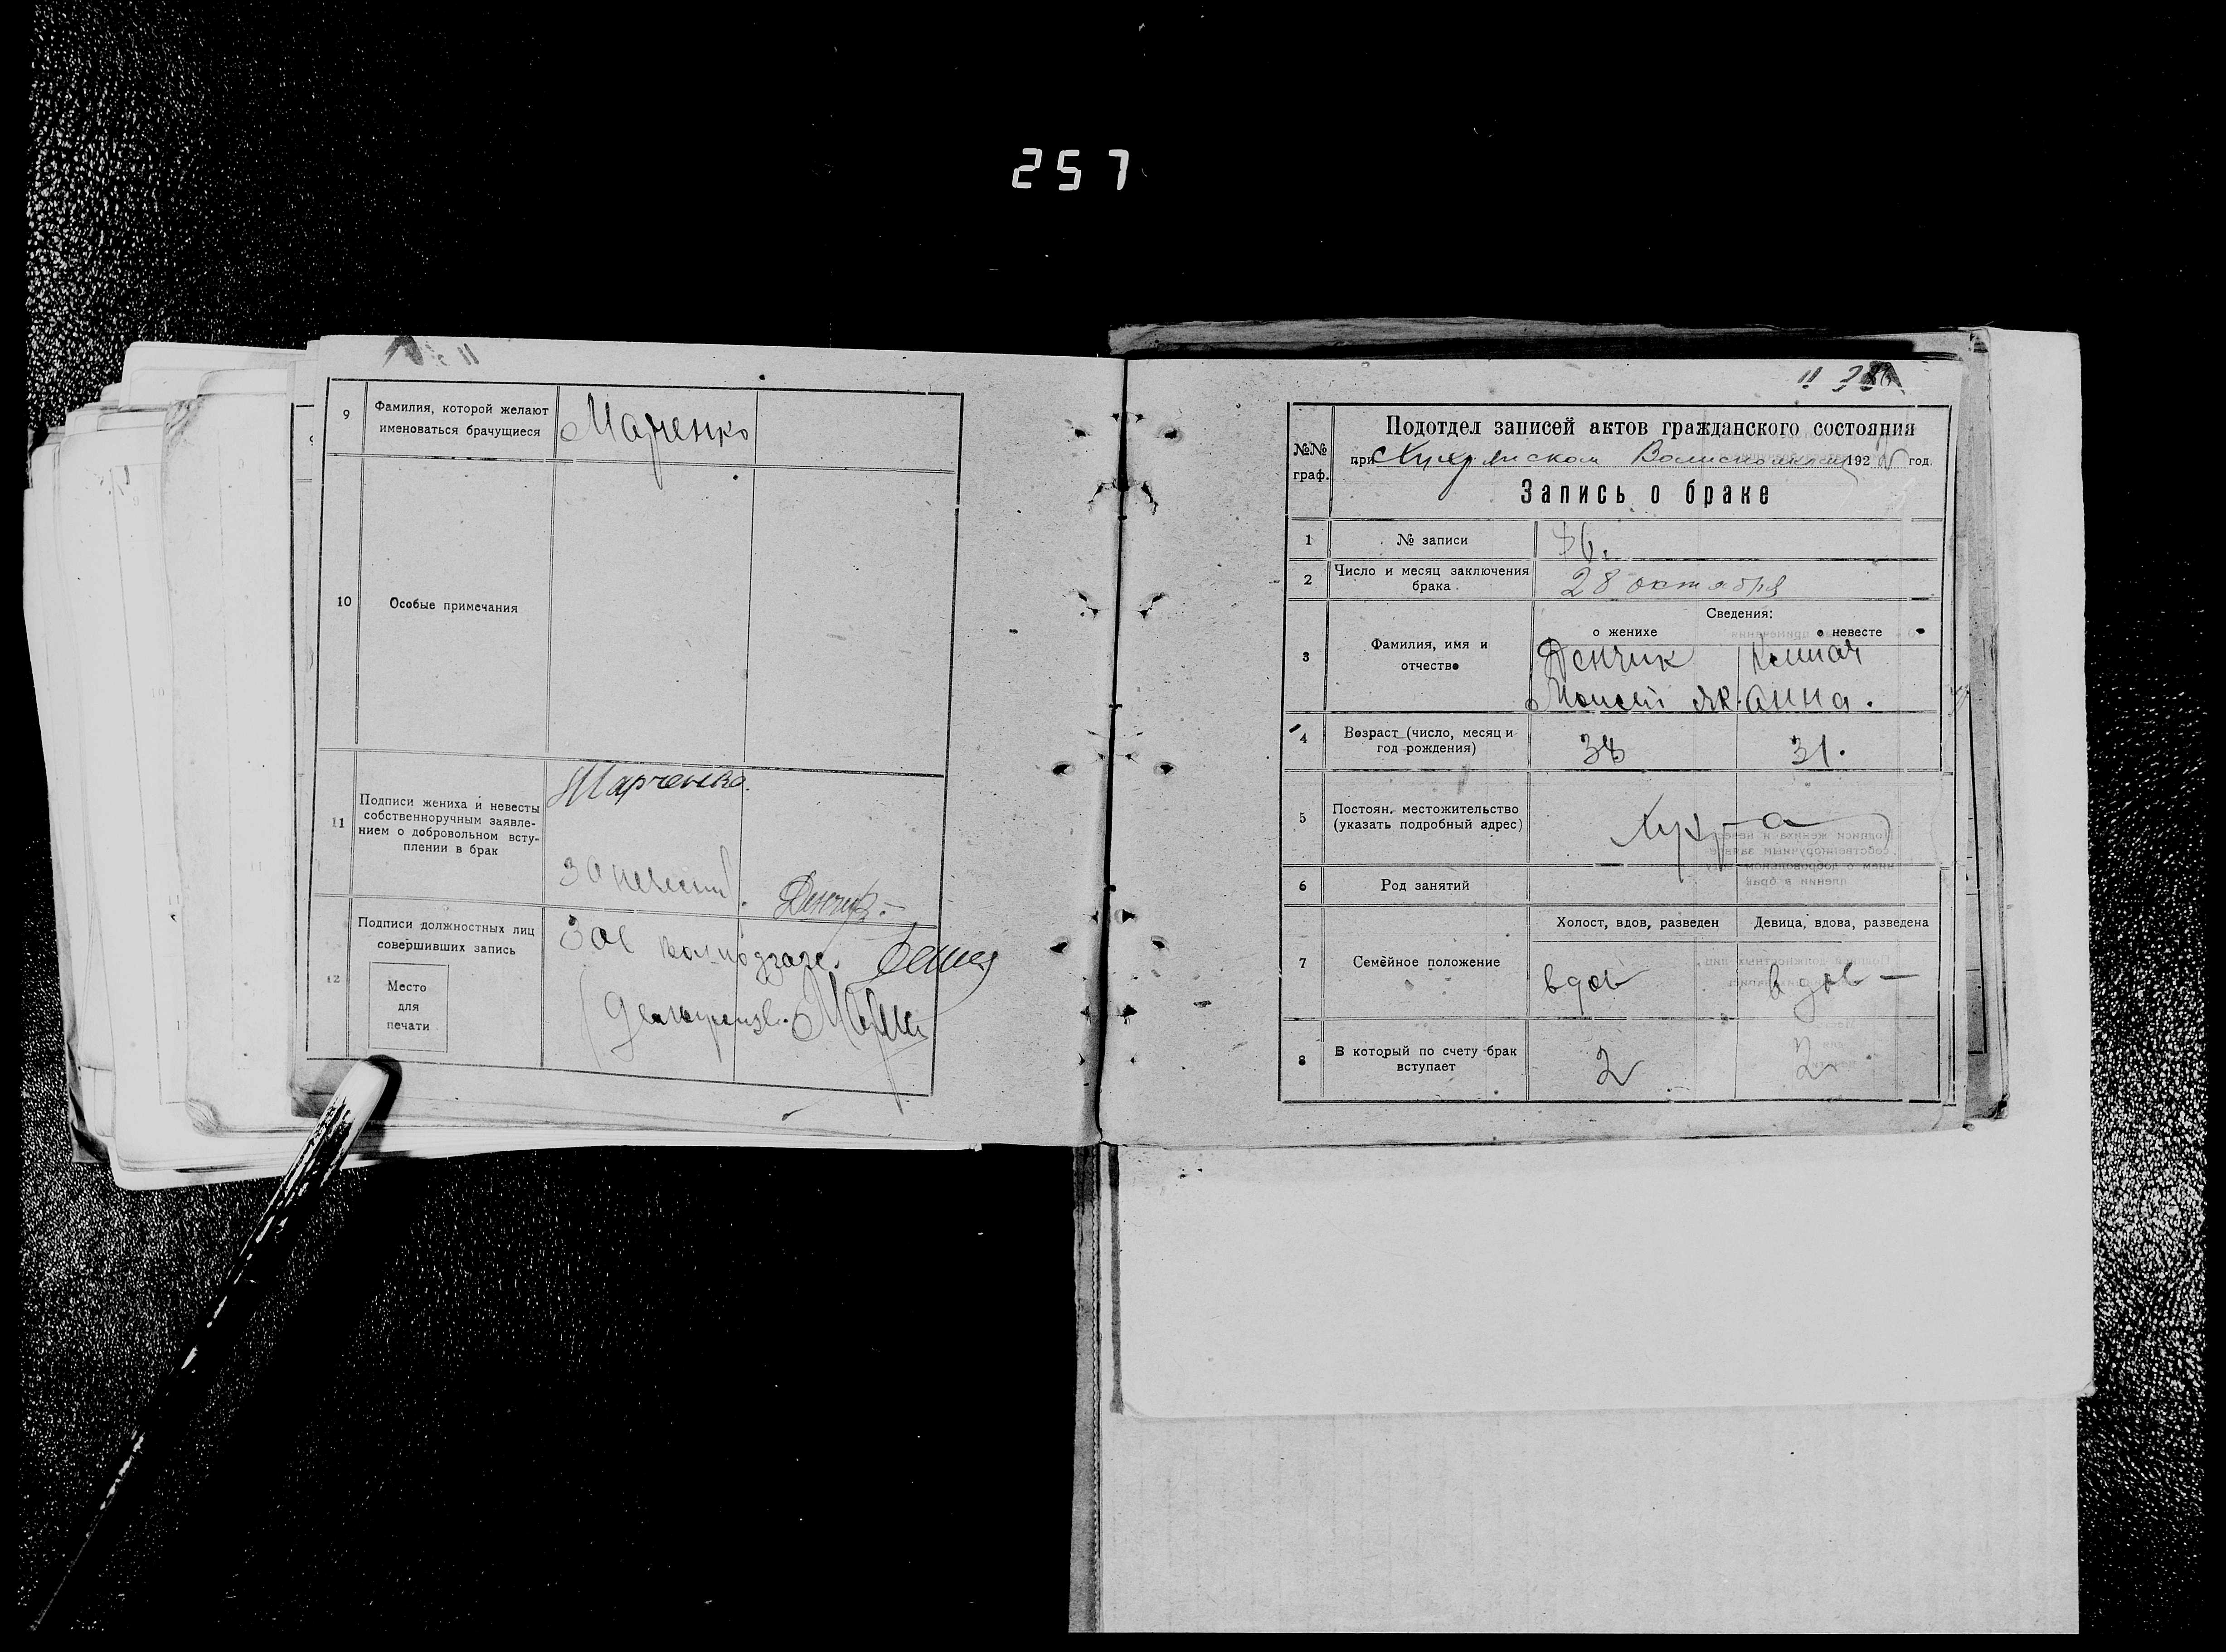 257
9
Фамилия, которой желают
именоваться брачущиеся
Марченко
10
Особые примечания
11
Подписи жениха и невесты
собственноручным заявле-
нием о добровольном всту-
плении в брак
Марченко.
За невесту
Денчик.
12
Подписи должностных лиц
совершивших запись
Место
для
печати
Зав
№№
граф.
Подотдел записей актов гражданского состояния
при 192 год.
Запись о браке
1
№ записи
2
Число и месяц заключения
брака
28 октября
Сведения:
3
Фамилия, имя и
отчество
о женихе
о невесте
Денчик
Моисей Як. Анна.
4
Возраст (число, месяц и
год рождения)
38
31.
5
Постоян. местожительство
(указать подробный адрес)
6
Род занятий
7
Семейное положение
Холост, вдов, разведен
Девица, вдова, разведена
вдов
вдов
8
В который по счету брак
вступает
2
2